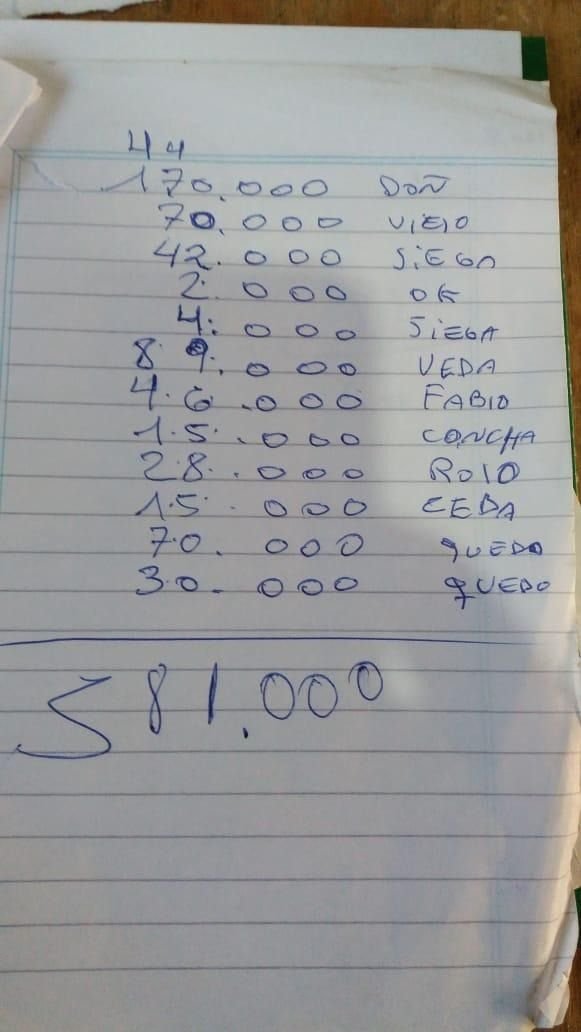 4 4
170.000 DOÑ
70.000 VIEJO
42.000 SIEGA
2.000 OK
4.000 SIEGA
89.000 VEDA
46.000 FABIO
15.000 CONCHA
28.000 ROJO
15.000 CEBA
70.000 QUEDO
30.000 QUEDO
581.000